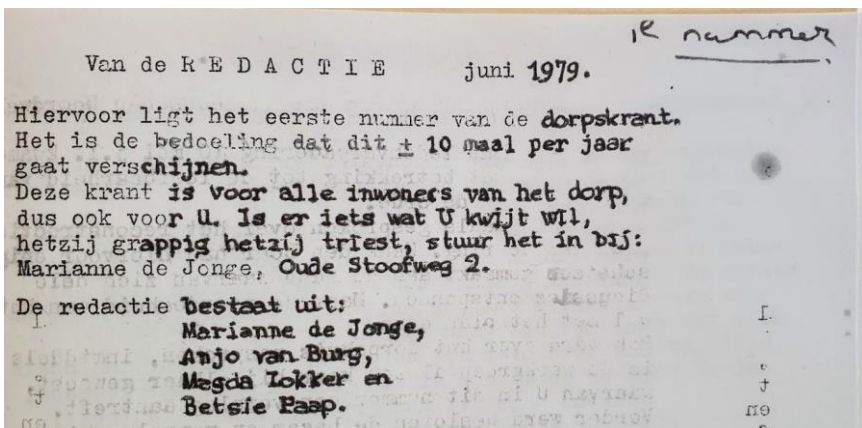 1e nummer
Van de R E D A C T I E juni 1979.
Hiervoor ligt het eerste nummer van de dorpskrant.
Het is de bedoeling dat dit ± 10 maal per jaar
gaat verschijnen.
Deze krant is voor alle inwoners van het dorp,
dus ook voor U. Is er iets wat U kwijt wil,
hetzij grappig hetzij triest, stuur het in bij:
Marianne de Jonge, Oude Stoofweg 2.
De redactie bestaat uit:
Marianne de Jonge,
Anjo van Burg,
Magda Lokker en
Betsie Paap.